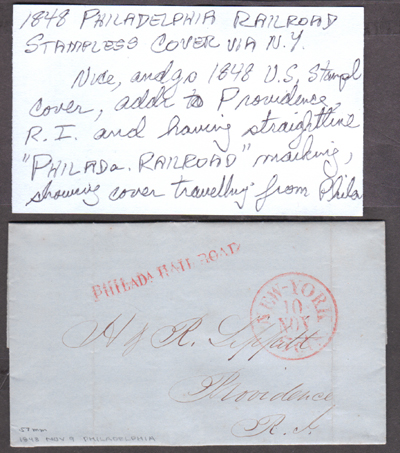 1848 PHILADELPHIA RAILROAD
STAMPLESS COVER VIA N.Y.
Nice, andg's 1848 U.S. Stampl
cover, addr to Providence,
R.I. and having straightline
"PHILADa. RAILROAD" marking,
showing cover travelling from Phila
PHILADA RAIL ROAD
NEW-YORK
10
NOV
H & R. Lippitt
Providence
R. I.
57mm
1848 NOV 9 PHILADELPHIA